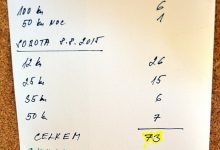 100 km 6
50 km NOC 1
SOBOTA 8.8.2015
12 km 26
25 km 15
35 km 6
50 k 7
CELKEM 73